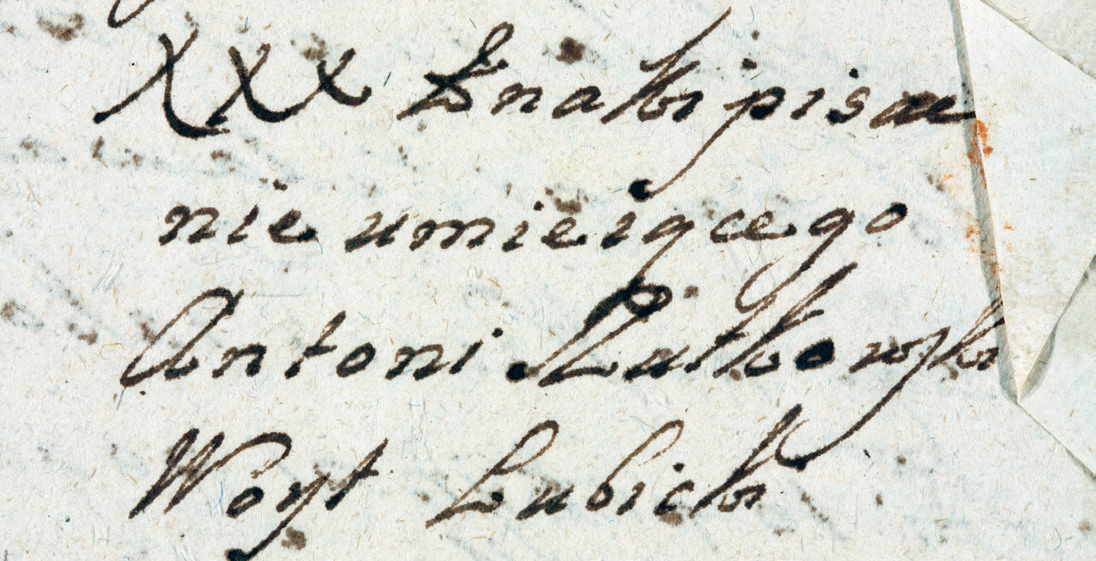 XXX Znaki pisac
nie umieiącego
Antoni Rutkowski
Woyt Lubicki